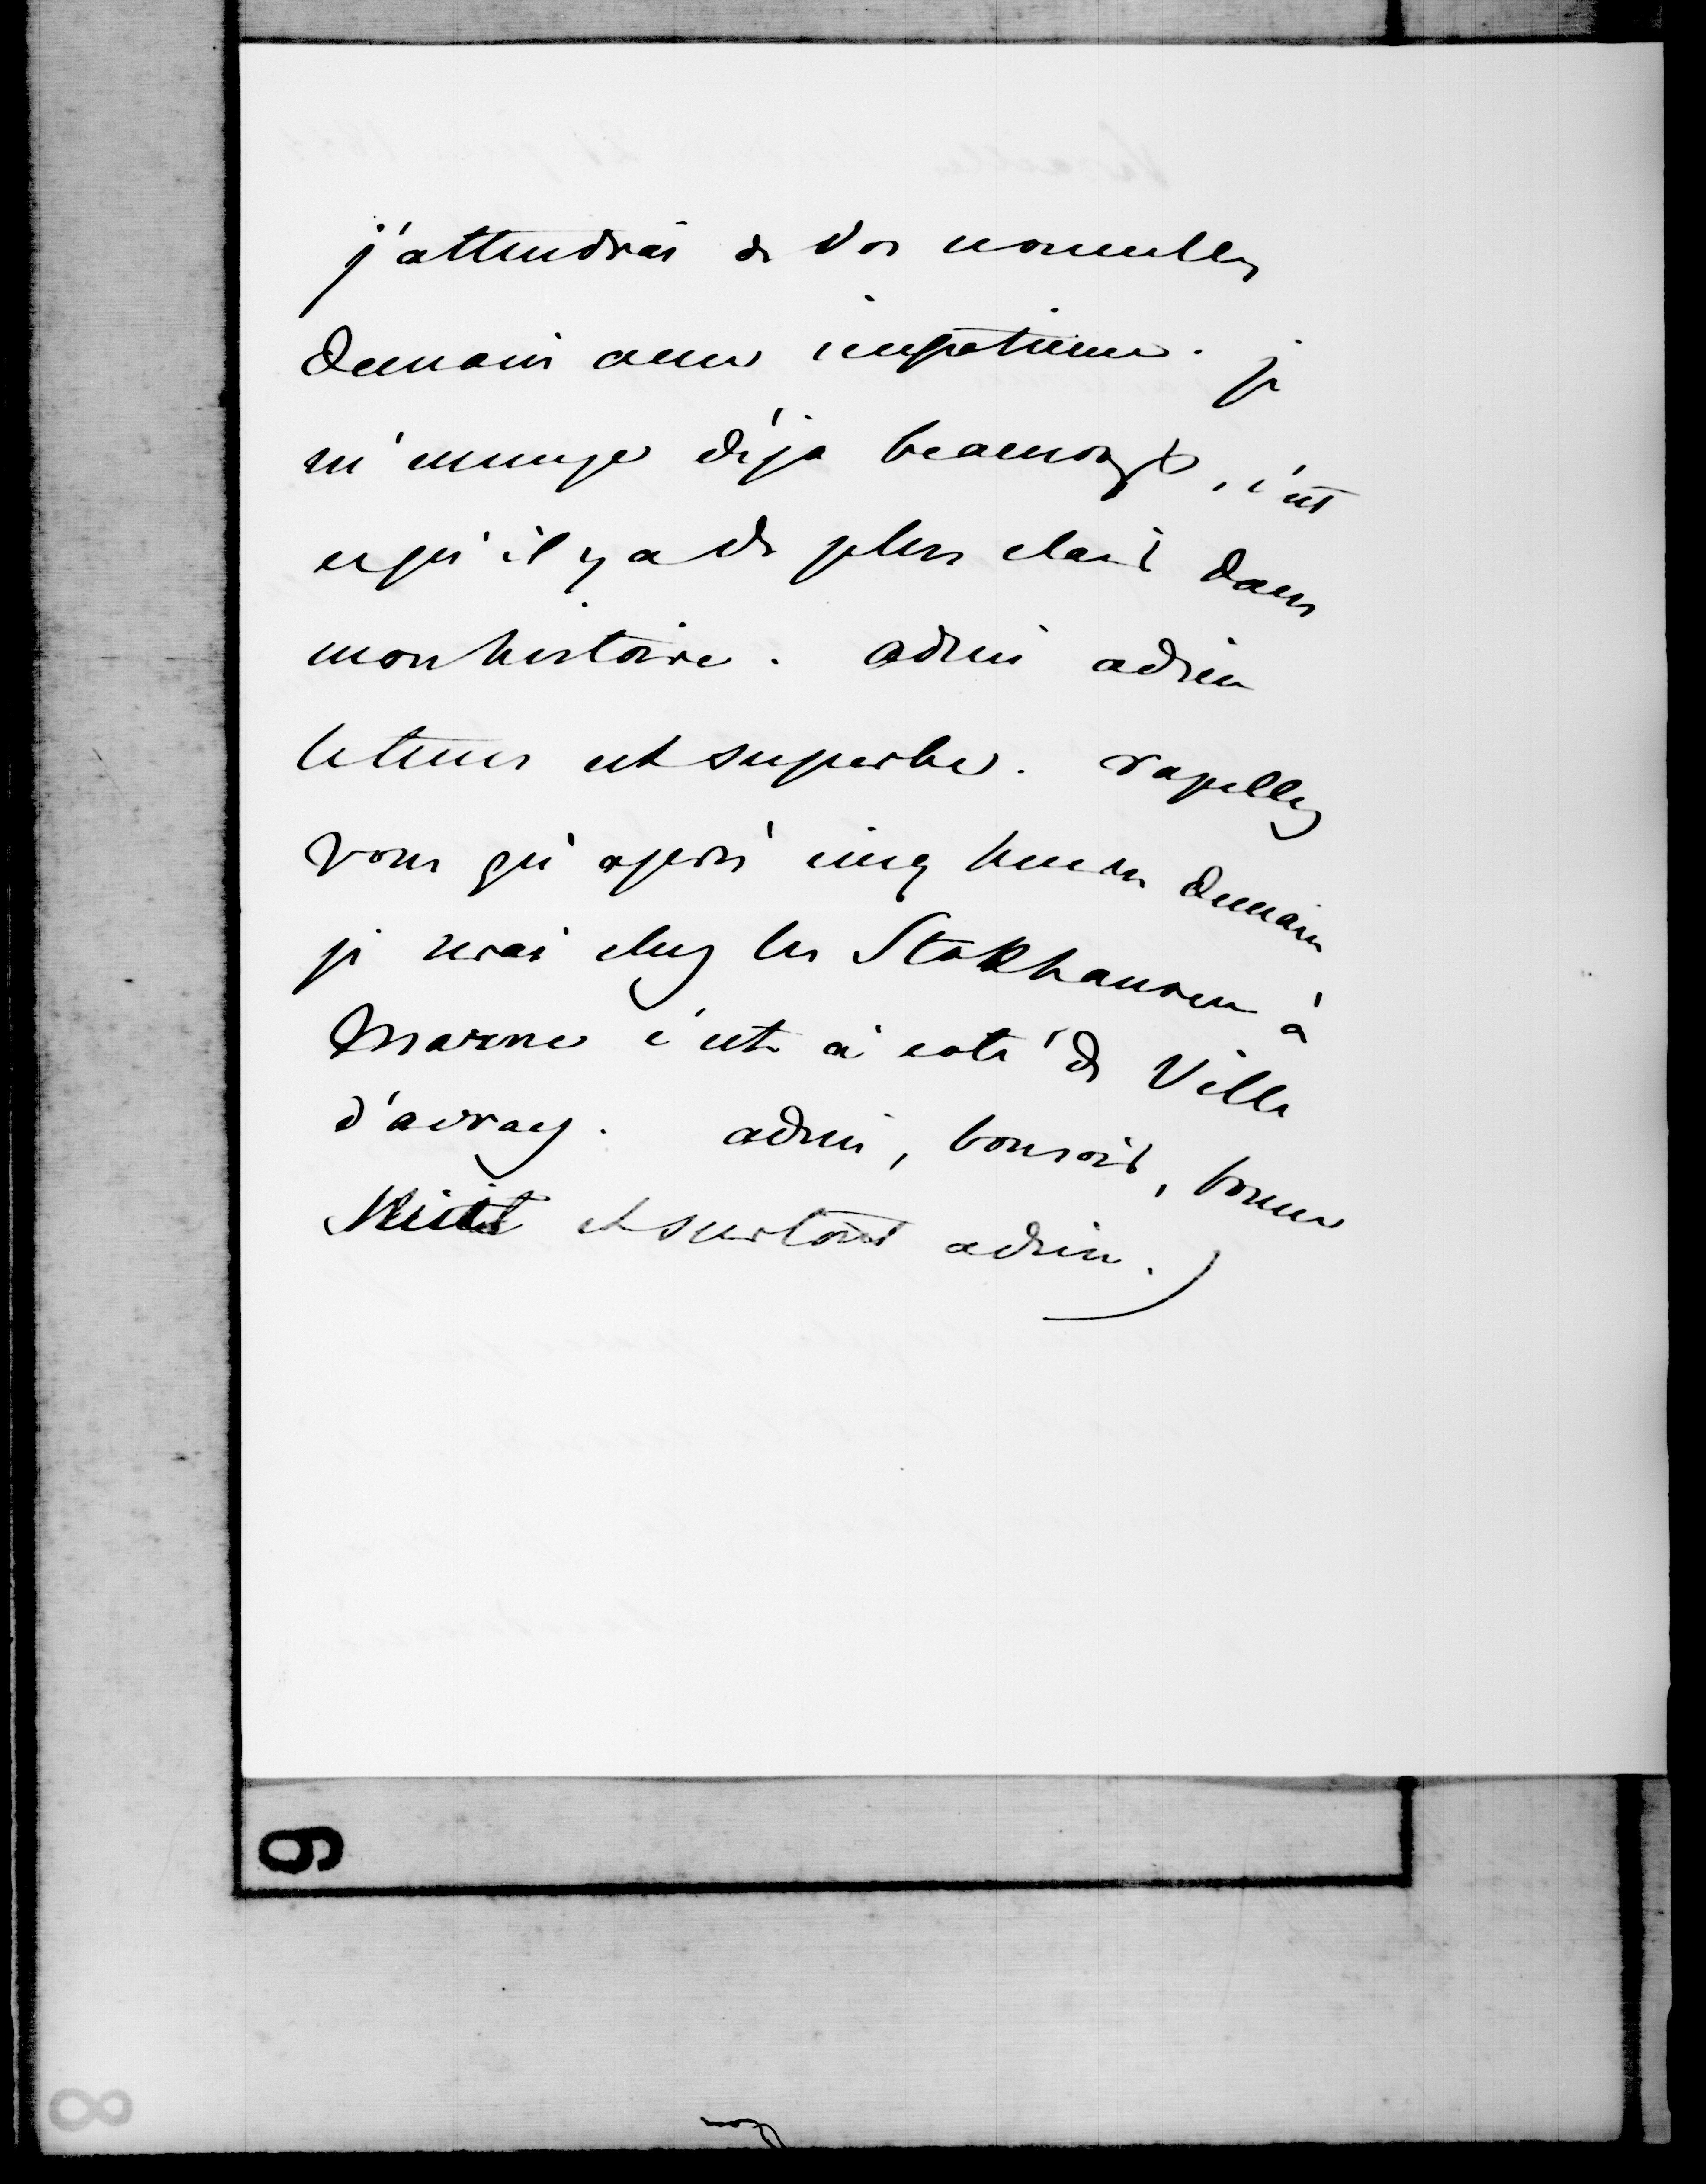 j'attendrai de vos nouvelles
demain avec impatience. je
m'ennuye déja beaucoup, c'est
ce qu'il y a de plus clair dans
mon histoire. adieu adieu
le tems est superbe. rapellez
vous qu'après cinq heures demain
je serai chez les Stokhausen à
Marne c'est à coté de Ville
d'avray. adieu, bonsoir, bonne
Nuit et surtout adieu.)
9
8